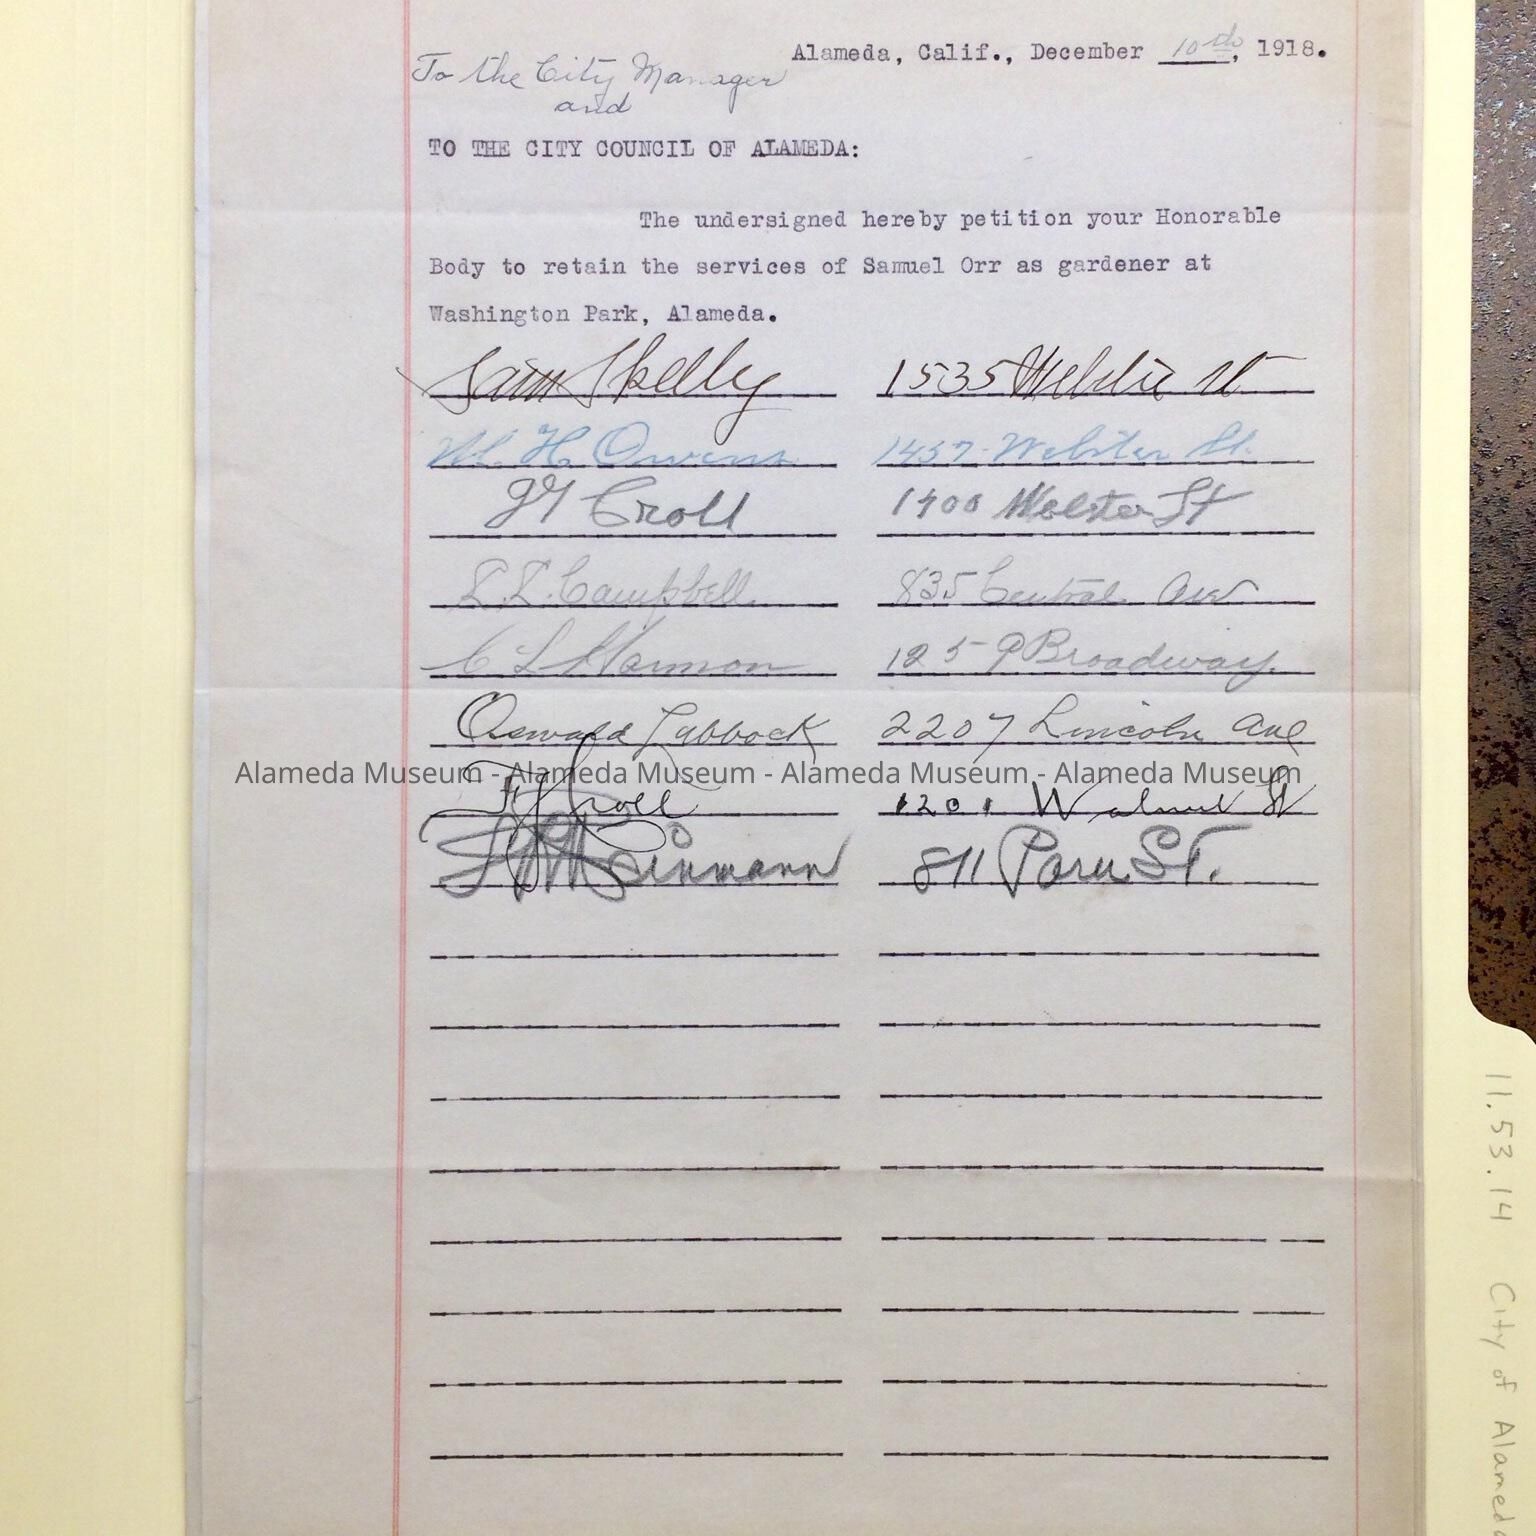 Alameda, Calif., December 10th, 1918.
To the City Manager
and
TO THE CITY COUNCIL OF ALAMEDA:
The undersigned hereby petition your Honorable
Body to retain the services of Samuel Orr as gardener at
Washington Park, Alameda.
Sam Skelly 1535 Webster St
M. H. Owens 1437 Webster St.
Croll 1400 Webster St
L. L. Campbell 835 Central Ave
C L Harmon 1259 Broadway.
Oswald Lubbock 2207 Lincoln Ave
Alameda Museum - Alameda Museum - Alameda Museum - Alameda Museum
Croll 1201 Walnut St
811 Paru St.
11.53.14 City of Alameda